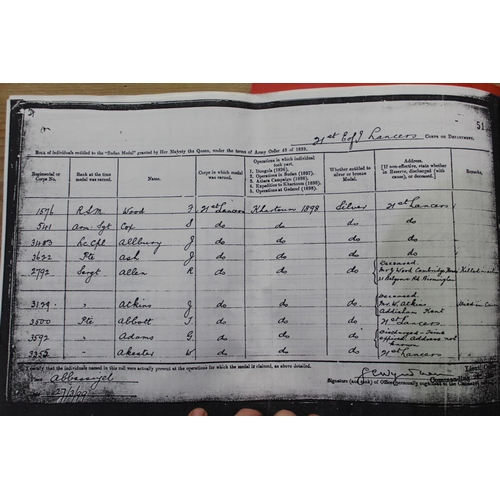 51
21st E of I Lancers CORPS OR DEPARTMENT.
ROLL of Individuals entitled to the "Sudan Medal" granted by Her Majesty the Queen, under the terms of Army Order of 1899.
Regimental or Corps No. Rank at time medal was earned. Name. Corps in which medal was earned. Operations in which individual took part. 1. Dongola (1896). 2. Operations in Sudan (1897). 3. Atbara Campaign (1898). 4. Expedition to Khartoum (1898). 5. Operations at Gedaref (1898). Whether entitled to silver or bronze Medal. Address, [If non-effective, state whether in Reserve, discharged (with cause), or deceased.] Remarks.
1576 RSM Wood F 21st Lancers Khartoum 1898 Silver 21st Lancers
Arm Sgt Cox S do do do do
3483 Lc Cpl Allbury J do do do do
3622 Pte Ash J do do do do
2792 Sergt Allen R do do do Deceased Mr J Wood Cambridge House 21 Belgrave Rd Birmingham Killed in
3129 " Atkins J do do do Deceased Mr W Atkins Addisham Kent Died in
3500 Pte Abbott T do do do 21st Lancers
3592 " Adams G do do do Discharged Time expired address not known
3355 " Akester W do do do 21st Lancers
I certify that the individuals named in this roll were actually present at the operations for which the medal is claimed, as above detailed.
Abbassiyeh
27/3/99
Signature (and rank) of Officer
Commanding